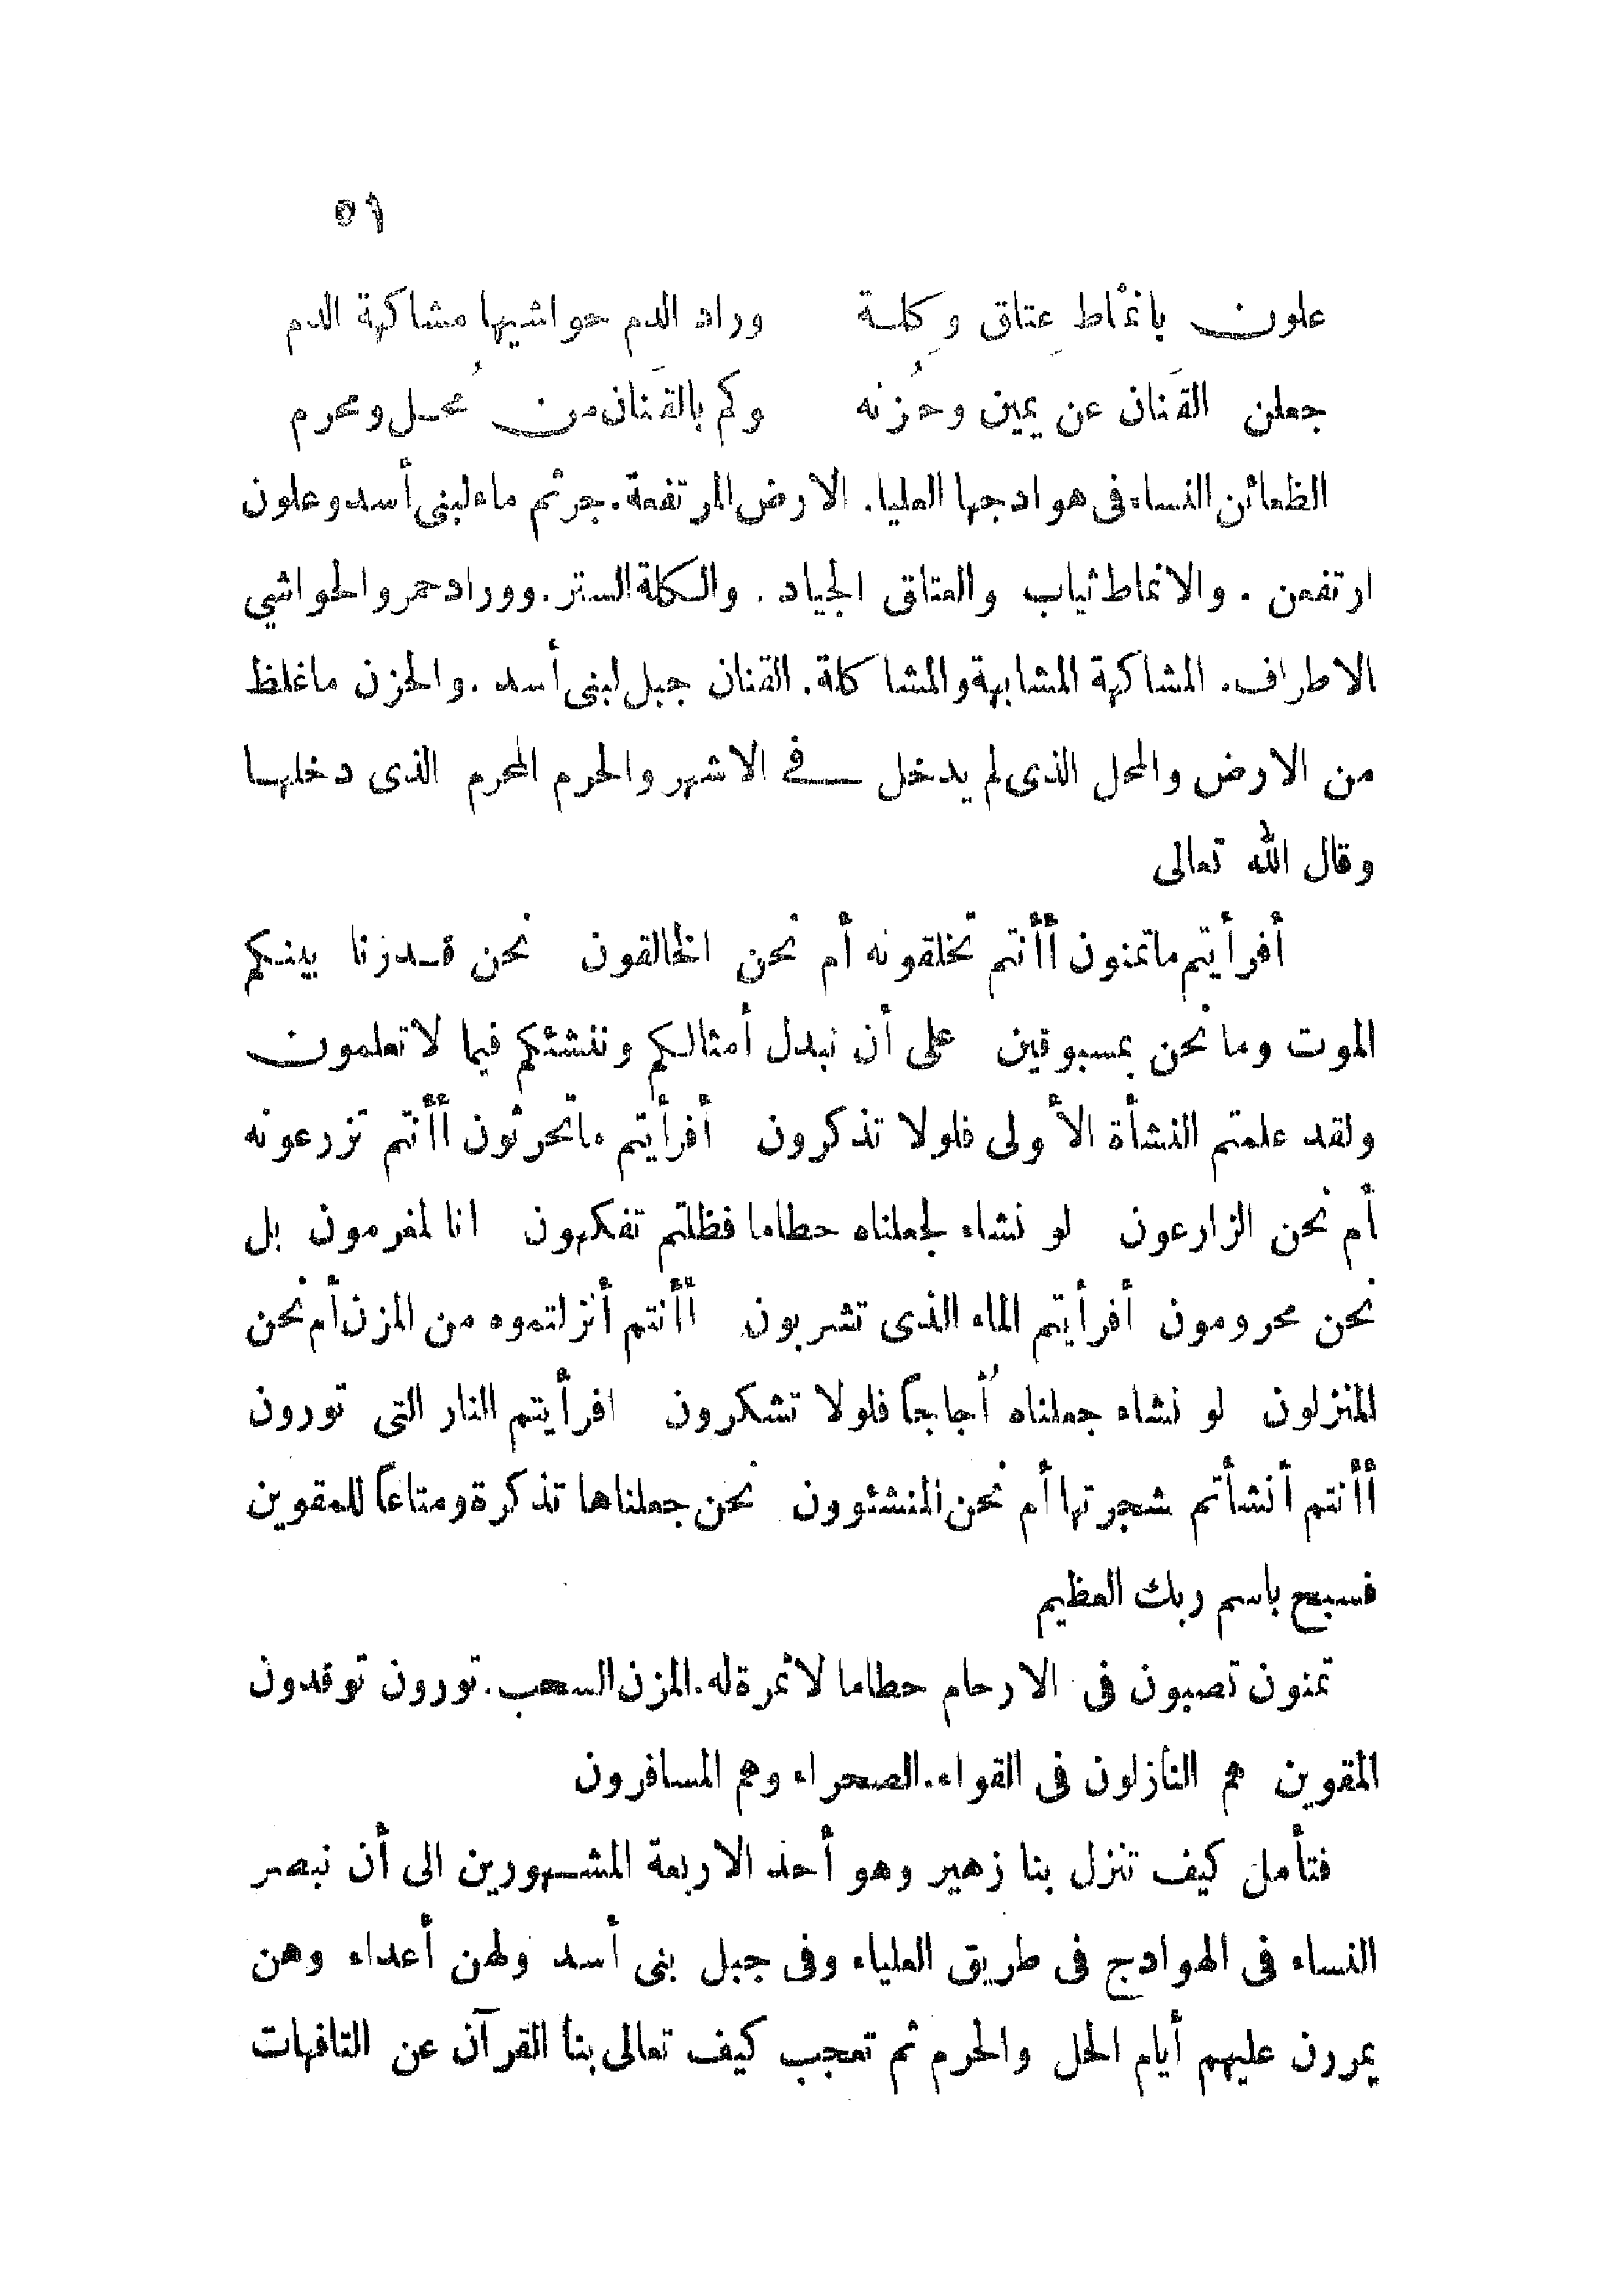 ٥٦
علون بانمْاط عِتاق وكِلة وراد الدم حواشيها مشاكهة الدم
جعلن القَنان عن يمين وحُزنه وكم بالقَنان من مُحل ومحرم
الظعائن النساء فى هوادجها العليا. الارض المرتفعة. جرثم ماء لبنى أسد وعلون
ارتفعن. والانماط ثياب والعتاق الجياد. والكلة الستر. ووراد حمر والحواشي
الاطراف. المشاكهة المشابهة والمشاكلة. القنان جبل لبنى أسد. والحزن ما غلظ
من الارض والمحل الذى لم يدخل فى الاشهر والحرم المحرم الذى دخلها
وقال الله تعالى
أفرأيتم ما تمنون أأنتم تخلقونه أم نحن الخالقون نحن قدرنا بينكم
الموت وما نحن بمسبوقين على أن نبدل أمثالكم وننشئكم فيما لا تعلمون
ولقد علمتم النشأة الأولى فلولا تذكرون أفرأيتم ما تحرثون أأنتم تزرعونه
أم نحن الزارعون لو نشاء لجعلناه حطاما فظلتم تفكهون انا لمغرمون بل
نحن محرومون أفرأيتم الماء الذى تشربون أأنتم أنزلتموه من المزن أم نحن
المنزلون لو نشاء جعلناه أُجاجاً فلولا تشكرون افرأيتم النار التى تورون
أأنتم أنشأتم شجرتها أم نحن المنشئوون نحن جعلناها تذكرة ومتاعاً للمقوين
فسبح باسم ربك العظيم
تمنون تصبون فى الارحام حطاما لا ثمرة له. المزن السحب. تورون توقدون
المقوين هم النازلون فى القواء. الصحراء وهم المسافرون
فتأمل كيف تنزل بنا زهير وهو أحد الاربعة المشهورين الى أن نبصر
النساء فى الهوادج فى طريق العلياء وفى جبل بنى أسد ولهن أعداء وهن
يمررن عليهم أيام الحل والحرم ثم تعجب كيف تعالى بنا القرآن عن التافهات